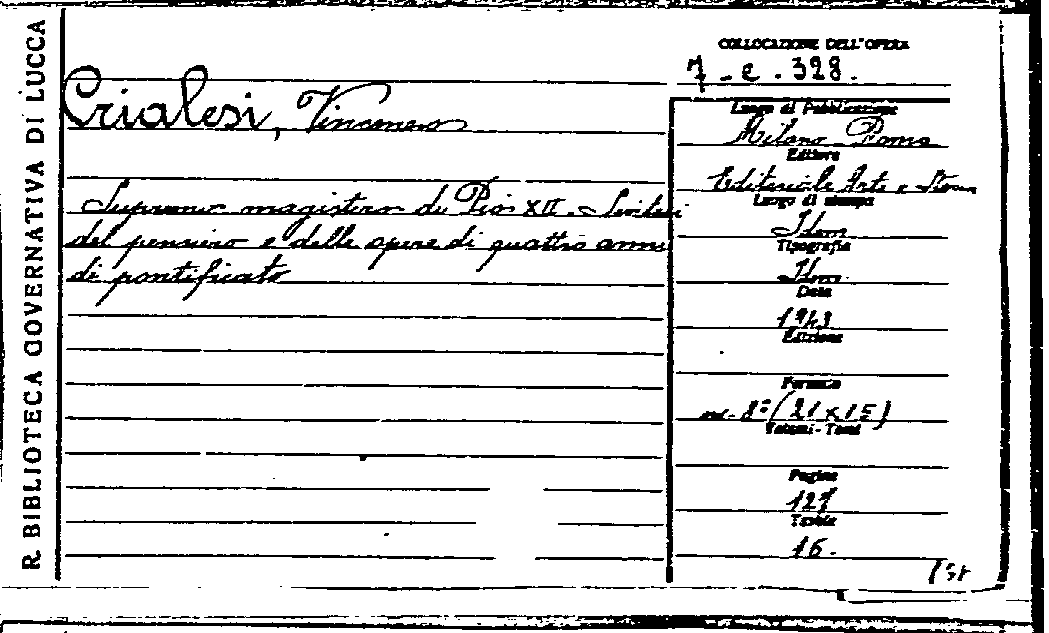 R. BIBLIOTECA GOVERNATIVA DI LUCCA
COLLOCAZIONE DELL'OPERA
7 - e . 328.
Crialesi, Vincenzo
Supremo magistero di Pio XII -
del pensiero e delle opere di quattro anni
di pontificato
Luogo di Pubblicazione
Milano Roma
Editore
Editoriale Arte e Storia
Luogo di stampa
Idem
Tipografia
Idem
Data
1943
Edizione
Formato
in-8° (21 x 15)
Volumi - Tomi
Pagine
127
Tavole
16.